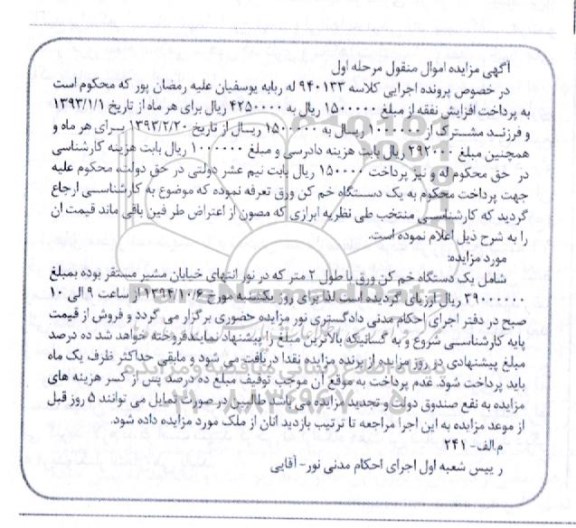 آگهی مزایده اموال منقول مرحله اول
در خصوص پرونده اجرایی کلاسه ۹۴۰۱۳۳ له ربابه یوسفیان علیه رمضان پور که محکوم است
به پرداخت افزایش نفقه از مبلغ ۱۵۰۰۰۰۰ ریال به ۴۲۵۰۰۰۰ ریال برای هر ماه از تاریخ ۱۳۹۳/۱/۱
و فرزند مشترک از ۱۰۰۰۰۰۰ ریال به ۱۵۰۰۰۰۰ ریال از تاریخ ۱۳۹۳/۲/۲۰ برای هر ماه و
همچنین مبلغ ۲۹۲۰۰۰ ریال بابت هزینه دادرسی و مبلغ ۱۰۰۰۰۰۰ ریال بابت هزینه کارشناسی
در حق محکوم له و نیز پرداخت ۱۵۰۰۰۰ ریال بابت نیم عشر دولتی در حق دولت، محکوم علیه
جهت پرداخت محکوم به یک دستگاه خم کن ورق تعرفه نموده که موضوع به کارشناسی ارجاع
گردید که کارشناسی منتخب طی نظریه ابرازی که مصون از اعتراض طرفین باقی ماند قیمت آن
را به شرح ذیل اعلام نموده است.
مورد مزایده:
شامل یک دستگاه خم کن ورق با طول ۲ متر که در نور انتهای خیابان مشیر مستقر بوده بمبلغ
۳۹۰۰۰۰۰۰ ریال ارزیابی گردیده است لذا برای روز یکشنبه مورخ ۱۳۹۴/۱۰/۶ از ساعت ۹ الی ۱۰
صبح در دفتر اجرای احکام مدنی دادگستری نور مزایده حضوری برگزار می گردد و فروش از قیمت
پایه کارشناسی شروع و به کسانیکه بالاترین مبلغ را پیشنهاد نمایند فروخته خواهد شد ده درصد
مبلغ پیشنهادی در روز مزایده از برنده مزایده نقدا دریافت می شود و مابقی حداکثر ظرف یک ماه
باید پرداخت شود. عدم پرداخت به موقع آن موجب توقیف مبلغ ده درصد پس از کسر هزینه های
مزایده به نفع صندوق دولت و تجدید مزایده می باشد طالبین در صورت تمایل می توانند ۵ روز قبل
از موعد مزایده به این اجرا مراجعه تا ترتیب بازدید آنان از ملک مورد مزایده داده شود.
م.الف- ۲۴۱
رییس شعبه اول اجرای احکام مدنی نور- آقایی